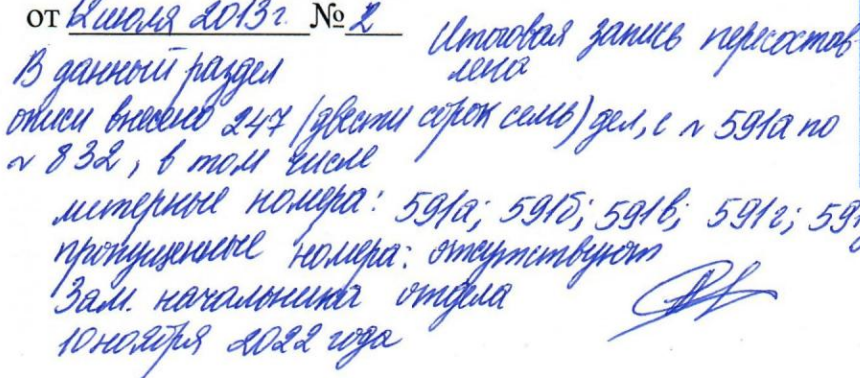 от 12 июля 2013 г. № 2
Итоговая запись пересостав-
лена
В данный раздел
описи внесено 247 (двести сорок семь) дел, с № 591а по
№ 832, в том числе
литерные номера: 591а; 591б; 591в; 591г; 591
пропущенные номера: отсутствуют
Зам. начальника отдела
10 ноября 2022 года